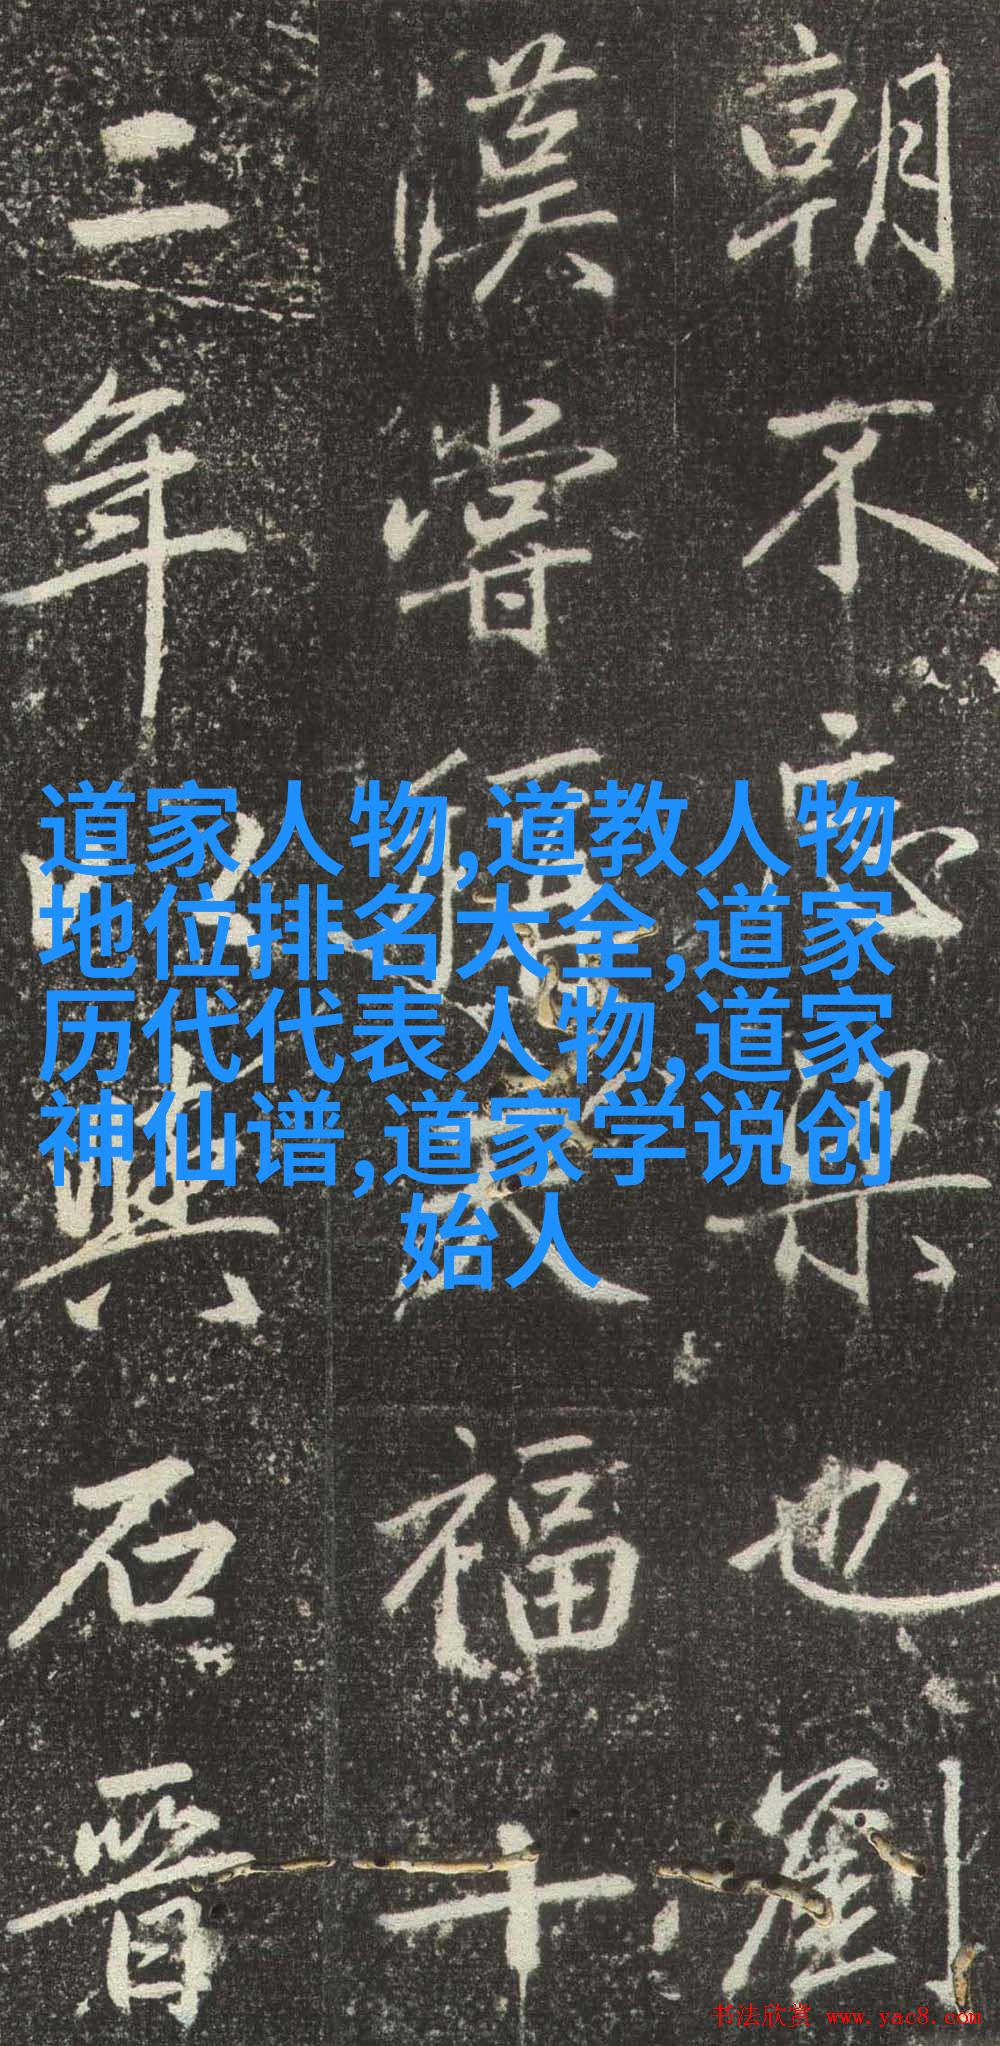 道家人物,道教人物
地位排名大全,道家
历代代表人物,道家
神仙谱,道家学说创
始人
朝不也劉
漢嘗天福十
二年與石晋
书法欣赏 www.yac8.com